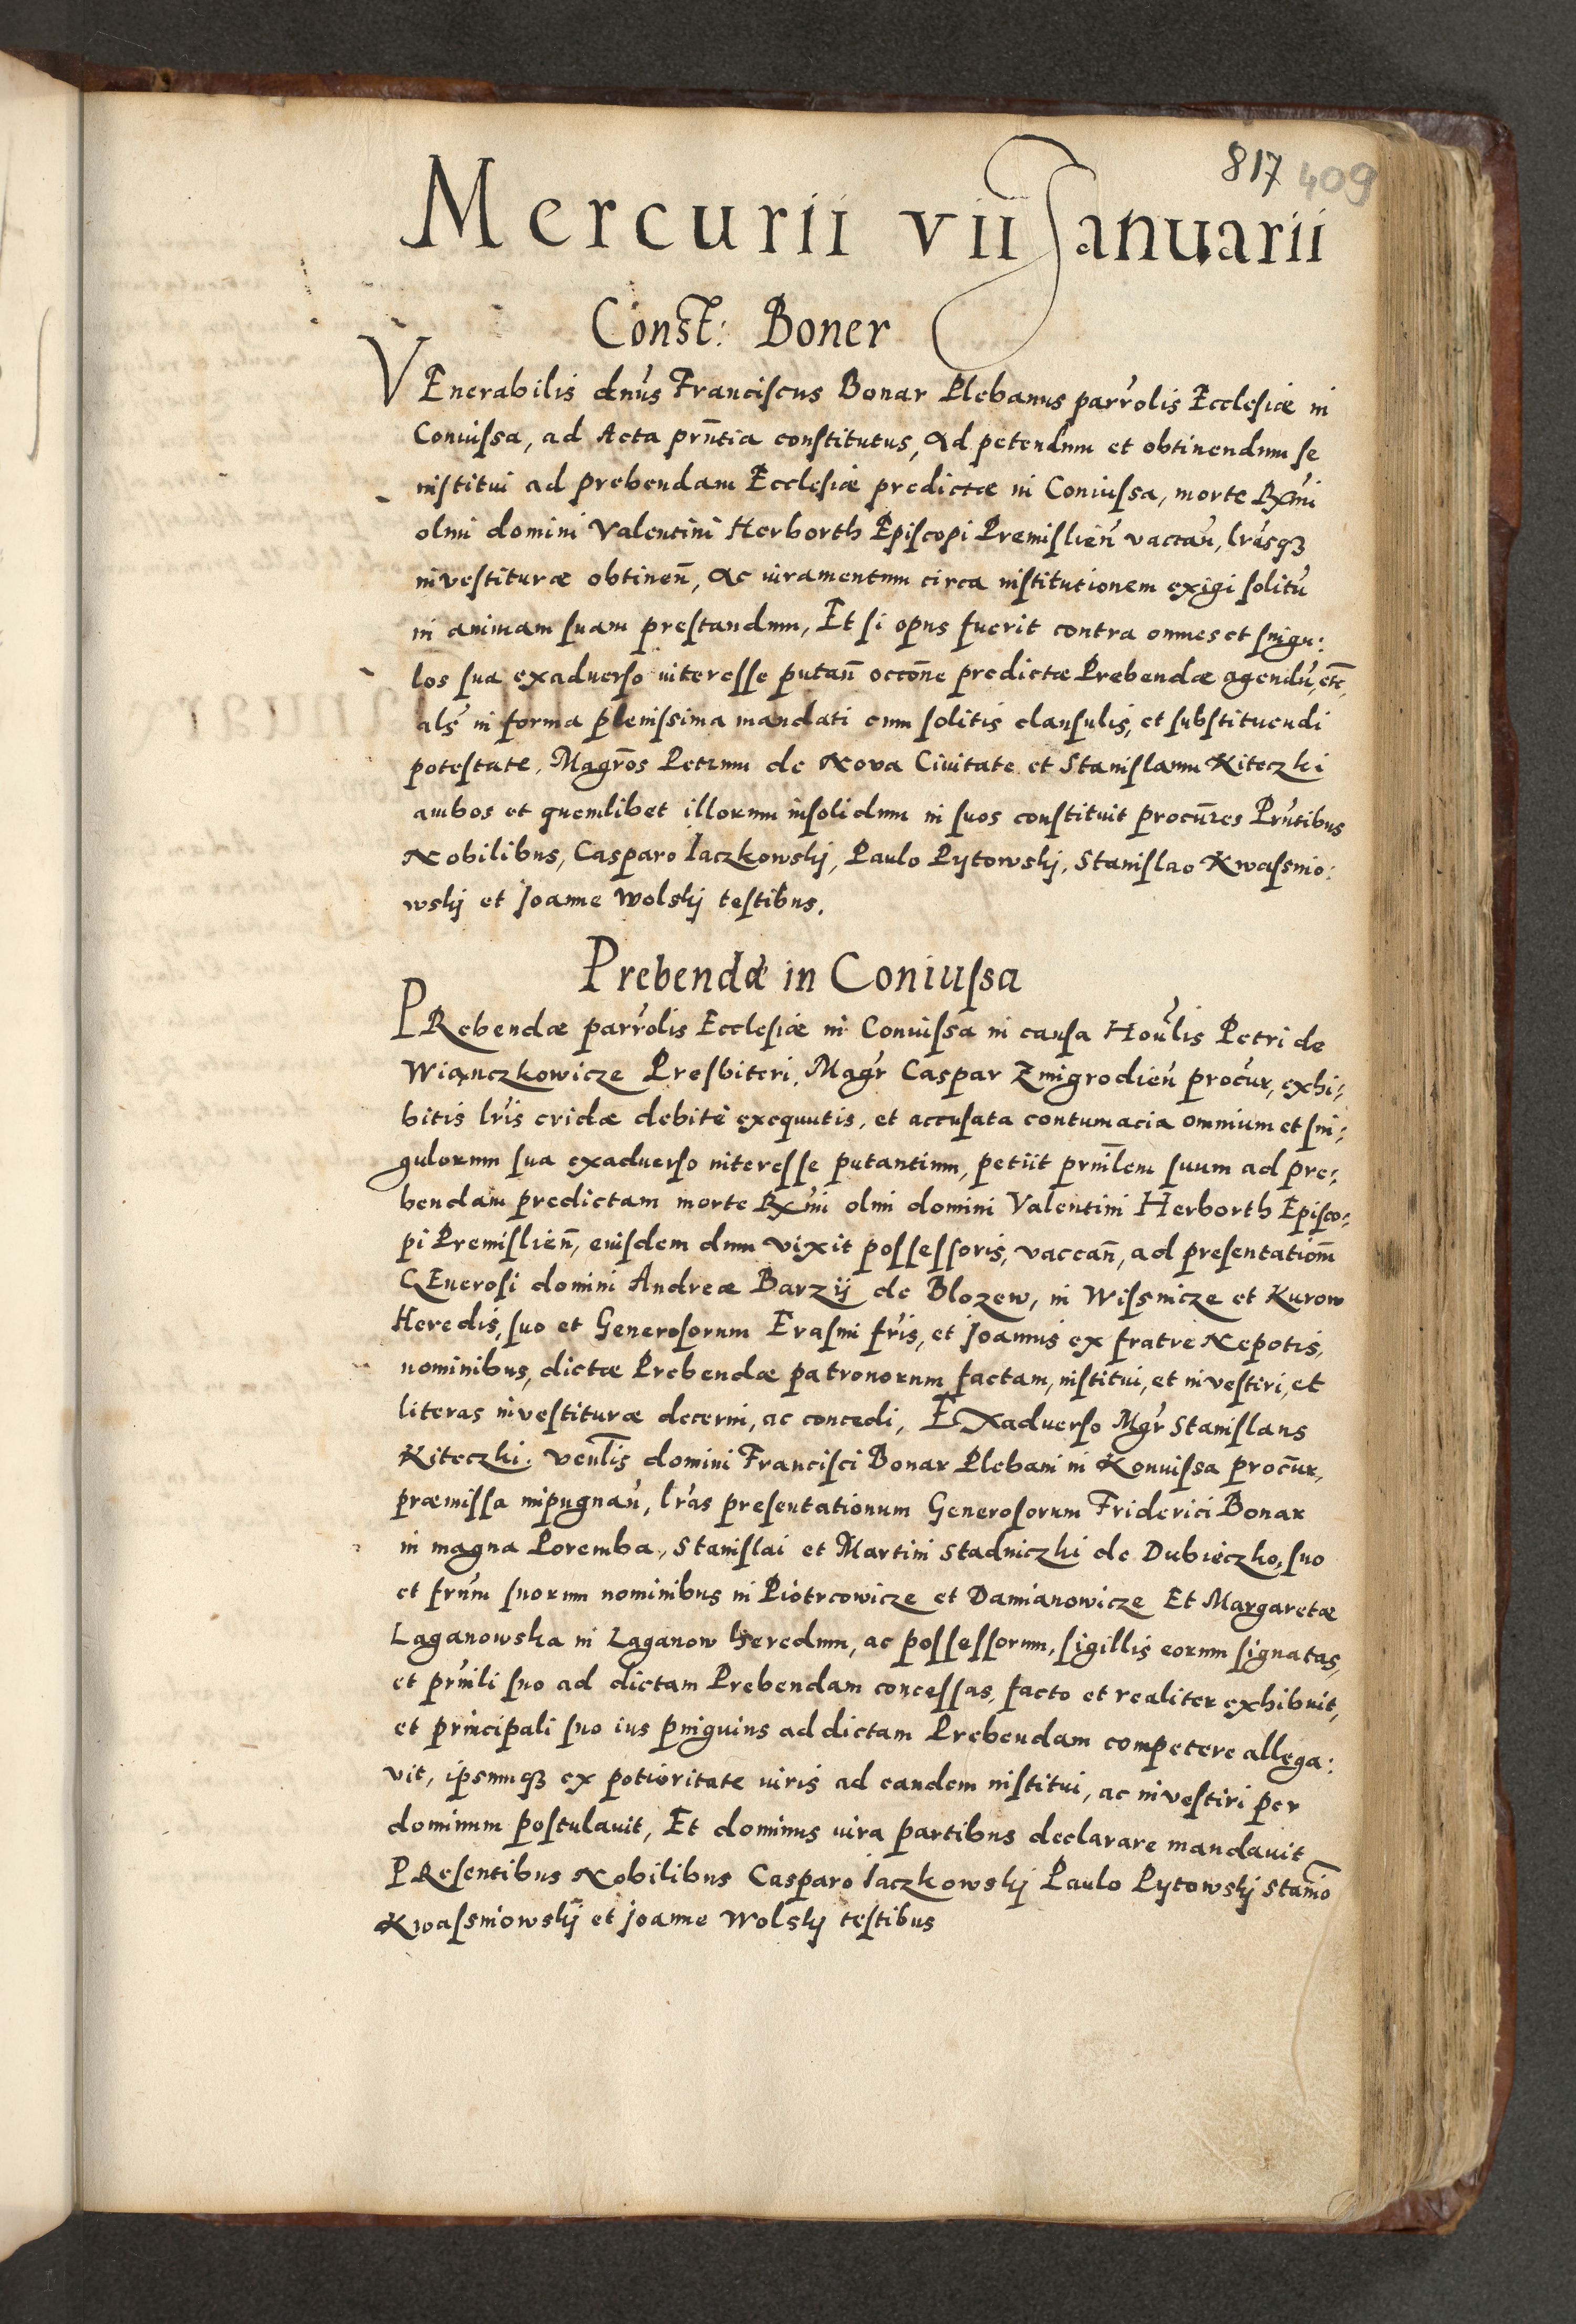 817 409
Mercurii vii Januarii
Const: Boner
VEnerabilis dnus Franciscus Bonar Plebanus parrolis Ecclesiæ in
Coniussa, ad Acta prntia constitutus, Ad petendum et obtinendum se
institui ad prebendam Ecclesiæ predictæ in Coniussa, morte Rx̃mi
olim domini Valentini Herborth Episcopi Premislien̄ vactan̄, lrasq3
investituræ obtinen̄, Ac iuramentum circa institutionem exigi solitū
in animam suam prestandum, Et si opus fuerit contra omnes et singu:
los sua exadverso interesse putan̄ occōne predictæ Prebendæ agendū, etc̄,
als in forma plenissima mandati cum solitis clausulis, et substituendi
potestate, Magrōs Petrum de Nova Civitate et Stanislaum Kiteczki
ambos et quemlibet illorum insolidum in suos constituit procūres Prntibus
Nobilibus, Casparo Iaczkowskj, Paulo Pytowskj, Stanislao Kwassnio:
wskj et Joanne Wolskj testibus.
Prebendæ in Coniussa
PRebendæ parrolis Ecclesiæ in Coniussa in causa Houlis Petri de
Wianczkowicze Presbiteri, Magr Caspar Zmigrodien̄ procur, exhi:
bitis lris cridæ debitè exequutis, et accusata contumacia omnium et sin:
gulorum sua exadverso interesse putantium, petiit prinlem suum ad pre:
bendam predictam morte Rx̃mi olim domini Valentini Herborth Episco:
pi Premislien̄, eiusdem dum vixit possessoris, vaccan̄, ad presentationm̄
GEnerosi domini Andreæ Barzij de Blozew, in Wissnicze et Kurow
Heredis, suo et Generosorum Erasmi fris, et Joannis ex fratre Nepotis,
nominibus, dictæ Prebendæ patronorum factam, institui, et investiri, et
literas investituræ decerni, ac concedi, EXadverso Mgr Stanislaus
Kiteczki. venlis domini Francisci Bonar Plebani in Konuissa procūr,
præmissa inpugnan̄, lras presentationum Generosorum Friderici Bonar
in magna Poremba, Stanislai et Martini Stadniczki de Dubieczko, suo
et frum suorum nominibus in Piotrcowicze et Damianowicze Et Margaretæ
Laganowska in Laganow heredum, ac possessorum, sigillis eorum signatas,
et prinli suo ad dictam Prebendam concessas, facto et realiter exhibuit,
et principali suo ius pinguius ad dictam Prebendam competere allega:
vit, ipsumq3 ex potioritate iuris ad eandem institui, ac investiri per
dominum postulavit, Et dominus iura partibus declarare mandavit
PResentibus Nobilibus Casparo Iaczkowskj Paulo Pytowskj Stanio
Kwassniowskj et Joanne Wolskj testibus